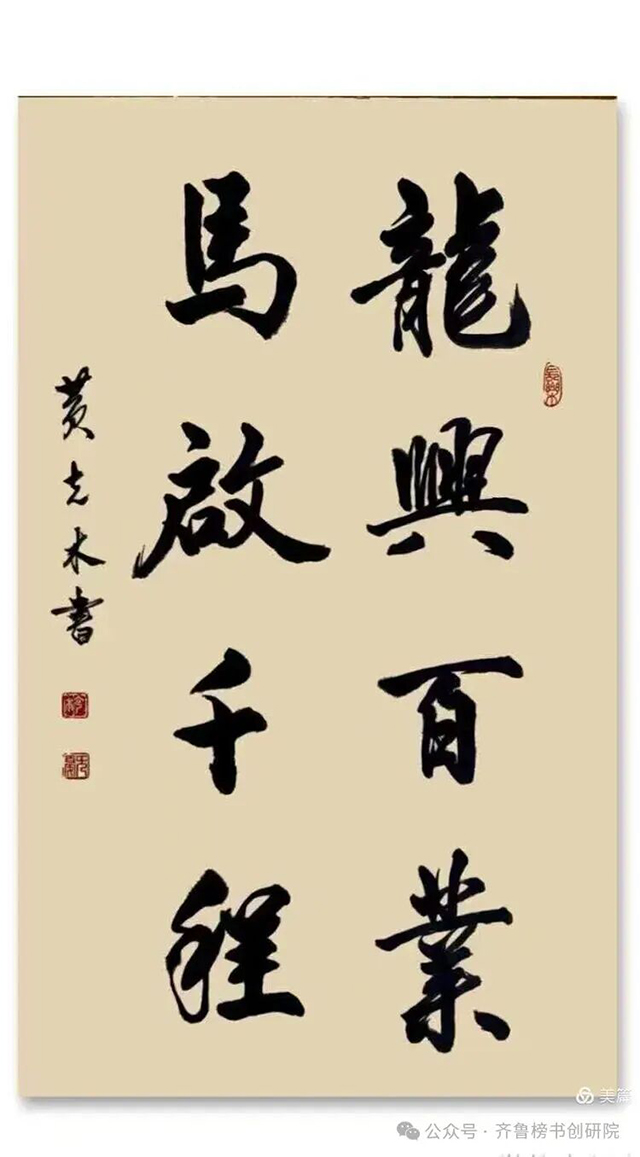 龍興百業
馬啟千程
黄志木書
美篇
公众号·齐鲁榜书创研院